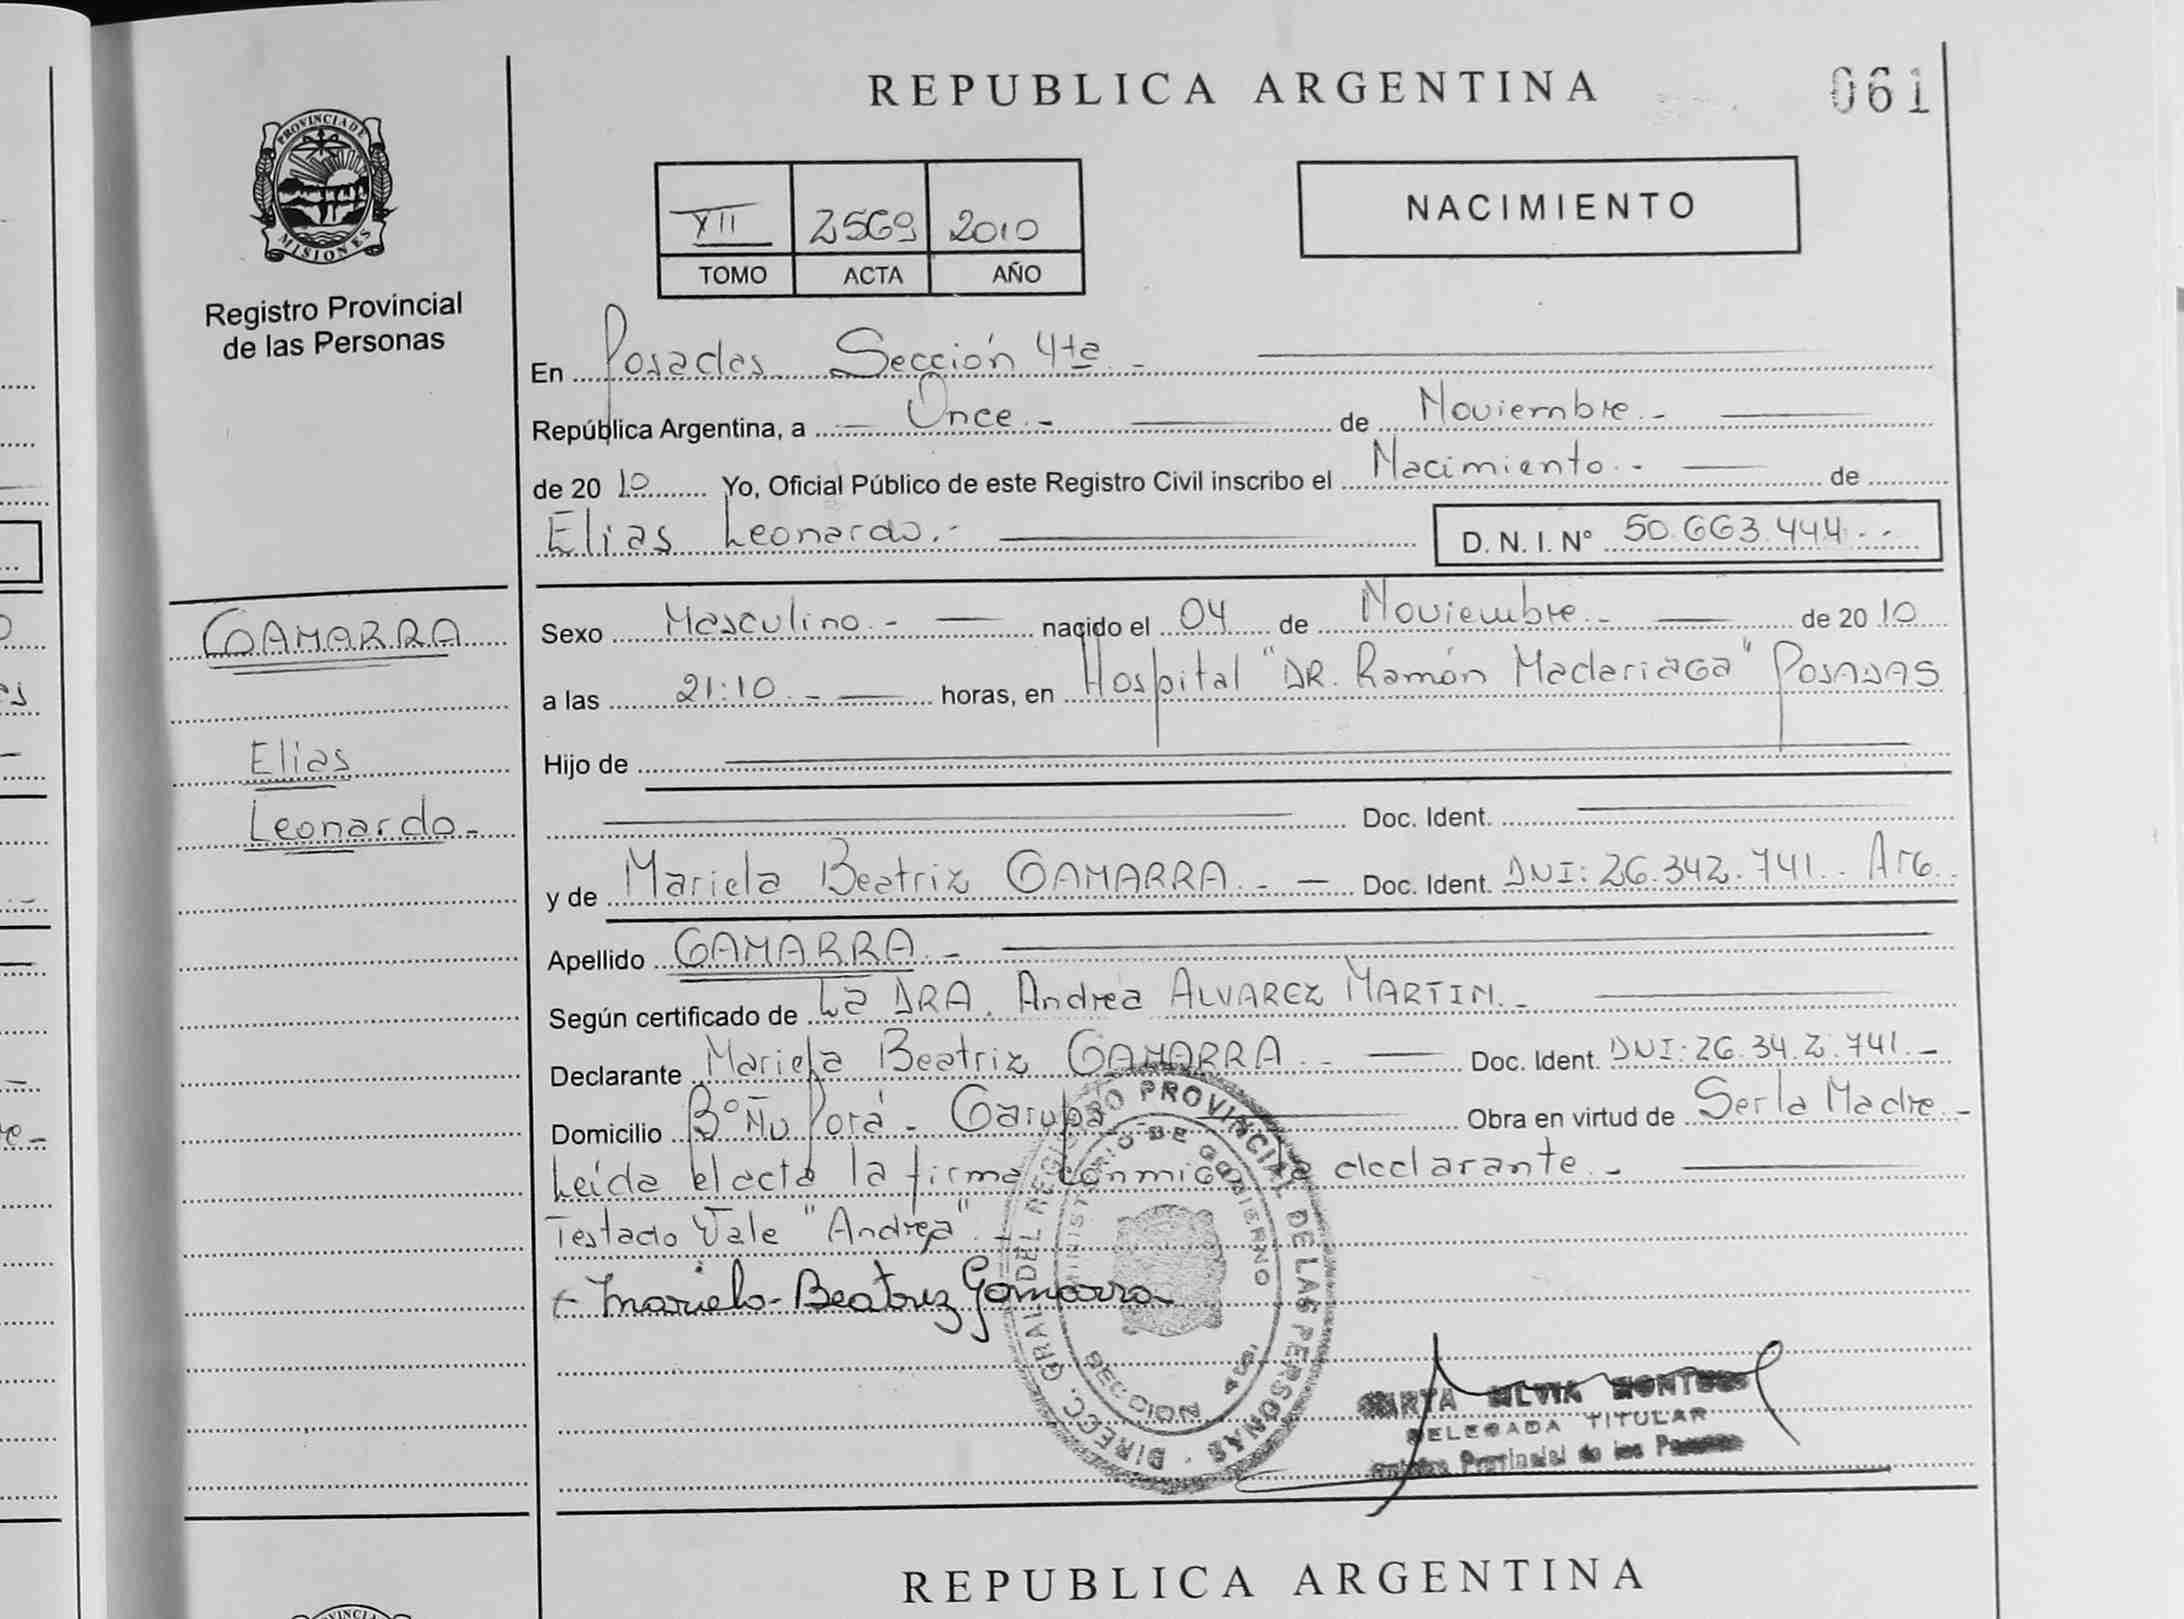 REPUBLICA ARGENTINA
061
PROVINCIA DE
MISIONES
Registro Provincial
de las Personas
XII 2569 2010
TOMO ACTA AÑO
NACIMIENTO
En Posadas Sección 4ta.-
República Argentina, a Once.- de Noviembre.-
de 2010 Yo, Oficial Público de este Registro Civil inscribo el Nacimiento.- de
Elias Leonardo.- D. N. I. N° 50.663.444.-
GAMARRA
Elias
Leonardo.-
Sexo Masculino.- nacido el 04 de Noviembre.- de 2010
a las 21:10.- horas, en Hospital "DR. Ramón Madariaga" POSADAS
Hijo de
Doc. Ident.
y de Mariela Beatriz GAMARRA.- Doc. Ident. DNI: 26.342.741.- Arg.
Apellido GAMARRA.-
Según certificado de La DRA. Andrea ALVAREZ MARTIN.-
Declarante Mariela Beatriz GAMARRA.- Doc. Ident. DNI: 26.342.741.-
Domicilio B° Ñu Porá - Garupá Obra en virtud de Ser la Madre.-
Leída el acta la firma conmigo la declarante.-
Testado Vale "Andrea".-
Mariela Beatriz Gamarra
DIRECC. GRAL. DEL REGISTRO PROVINCIAL DE LAS PERSONAS
MINISTERIO DE GOBIERNO
SECCION 4ta.
SILVIA
DELEGADA TITULAR
Provincial de las
REPUBLICA ARGENTINA
PROVINCIA